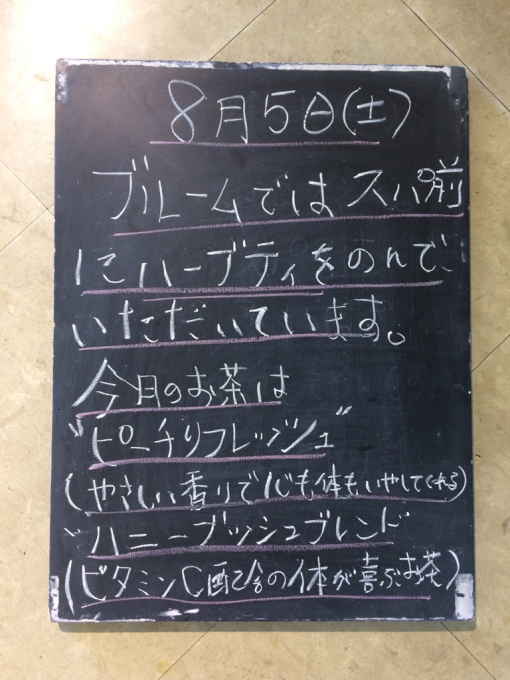 8月5日(土)
ブルームではスパ前
にハーブティをのんで
いただいています。
今日のお茶は
"ピーチリフレッシュ"
(やさしい香りで心も体もいやしてくれる)
"ハニーブッシュブレンド"
(ビタミンC配合の体が喜ぶお茶)